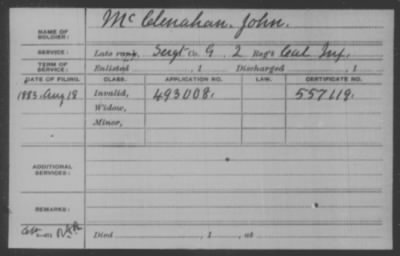 NAME OF SOLDIER: McClenahan, John.
SERVICE: Late rank, Sergt Co. G 2 Reg't Cal Inf.
TERM OF SERVICE: Enlisted , 1 Discharged , 1
DATE OF FILING. CLASS. APPLICATION NO. LAW. CERTIFICATE NO.
1883 Aug 18 Invalid, 493008. 557119.
Widow,
Minor,
ADDITIONAL SERVICES:
REMARKS:
Died , 1 , at